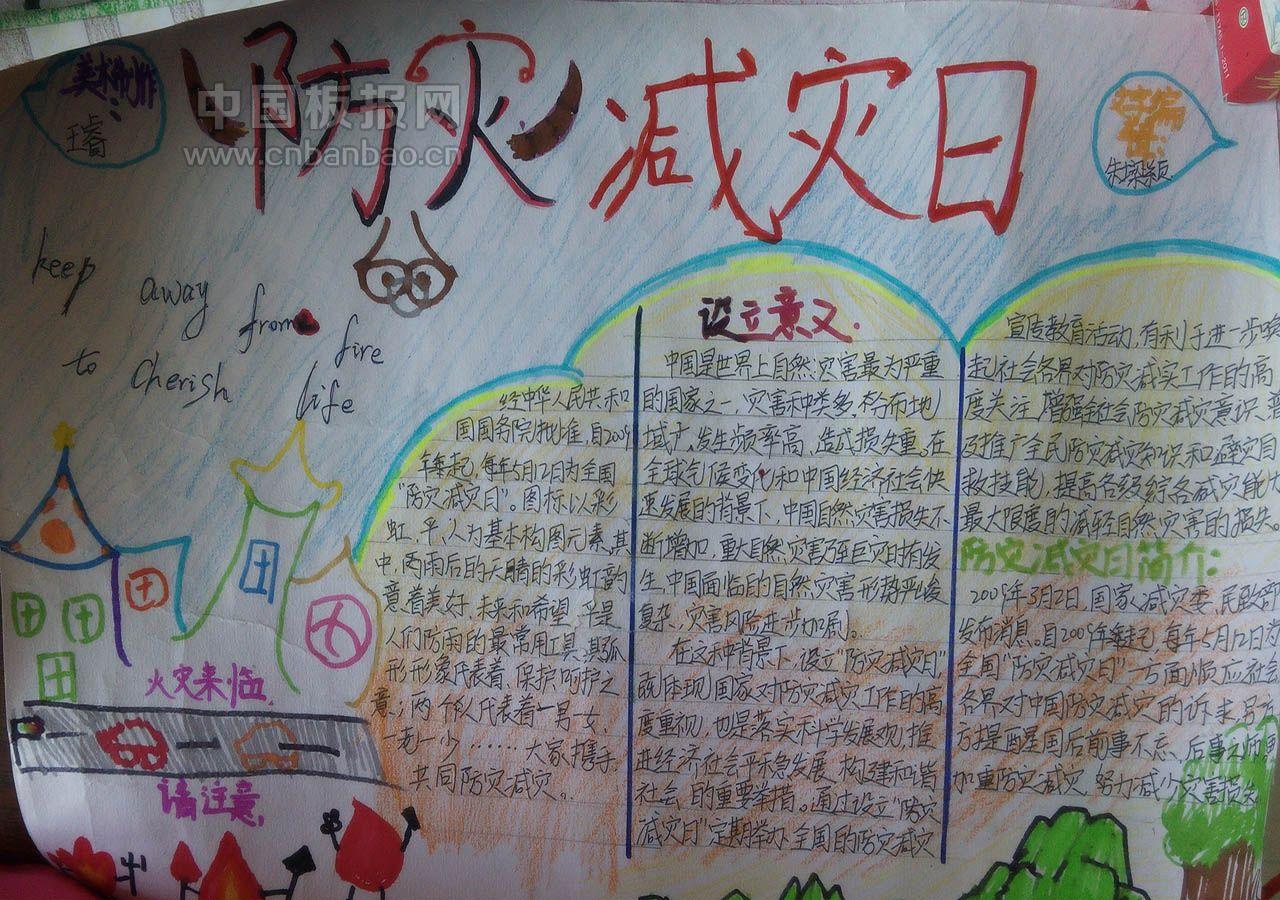 防灾减灾日
中国板报网
www.cnbanbao.cn
美术制作
王睿
keep away from fire
to cherish life
火灾来临
请注意
经中华人民共和
国国务院批准,自2009
年起,每年5月12日为全国
"防灾减灾日"。图标以彩
虹、伞、人为基本构图元素,其
中,雨后的天晴的彩虹韵
意着美好、未来和希望,伞是
人们防雨的最常用工具,其弧
形形象代表着,保护呵护之
意;两个人代表着一男一女、
一老一少……大家携手,
共同防灾减灾。
设立意义.
中国是世界上自然灾害最为严重
的国家之一,灾害种类多,分布地
域广,发生频率高,造成损失重。在
全球气候变化和中国经济社会快
速发展的背景下,中国自然灾害损失不
断增加,重大自然灾害乃至巨灾时有发
生,中国面临的自然灾害形势严峻
复杂,灾害风险进步加剧。
在这种背景下,设立"防灾减灾日"
既体现国家对防灾减灾工作的高
度重视,也是落实科学发展观,推
进经济社会平稳发展,构建和谐
社会的重要举措。通过设立"防灾
减灾日"定期举办全国的防灾减灾
宣传教育活动,有利于进一步唤
起社会各界对防灾减灾工作的高
度关注,增强全社会防灾减灾意识,普
及推广全民防灾减灾知识和避灾自
救技能,提高各级综合减灾能力
最大限度的减轻自然灾害的损失。
防灾减灾日简介:
2009年3月2日,国家减灾委、民政部
发布消息。自2009年起,每年5月12日为
全国"防灾减灾日"一方面顺应社会
各界对中国防灾减灾的诉求,另一
方提醒国后前事不忘、后事之师,更
加重防灾减灾,努力减少灾害损失